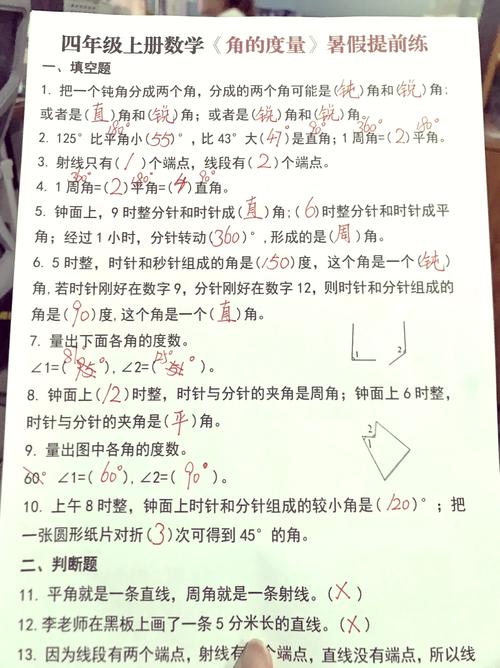 四年级上册数学《角的度量》暑假提前练
一、填空题
1. 把一个钝角分成两个角，分成的两个角可能是(钝)角和(锐)角；
或者是(直)角和(锐)角；或者是(锐)角和(锐)角。
180° 90° 360° 180°
2. 125°比平角小(55)°，比 43°大(47)°是直角；1 周角=(2)平角。
3. 射线只有(1)个端点，线段有(2)个端点。
360° 180° 90°
4. 1 周角=(2)平角=(4)直角。
5. 钟面上，9 时整分针和时针成(直)角；(6)时整分针和时针成平
角；经过 1 小时，分针转动(360)°,形成的是(周)角。
6. 5 时整，时针和秒针组成的角是(150)度，这个角是一个(钝)
角.若时针刚好在数字 9，分针刚好在数字 12，则时针和分针组成的
角是(90)度,这个角是一个(直)角。
7. 量出下面各角的度数。
∠1=( ),∠2=( )。
1 2
8. 钟面上(12)时整，时针与分针的夹角是周角；钟面上 6 时整，
时针与分针的夹角是(平)角。
2
1
9. 量出图中各角的度数。
60° ∠1=(60°),∠2=(90°)。
10. 上午 8 时整，钟面上时针和分针组成的较小角是(120)°；把
一张圆形纸片对折(3)次可得到 45°的角。
二、判断题
11. 平角就是一条直线，周角就是一条射线。(X)
12. 李老师在黑板上画了一条 5 分米长的直线。(X)
13. 因为线段有两个端点，射线有 个端点，直线没有端点，所以线